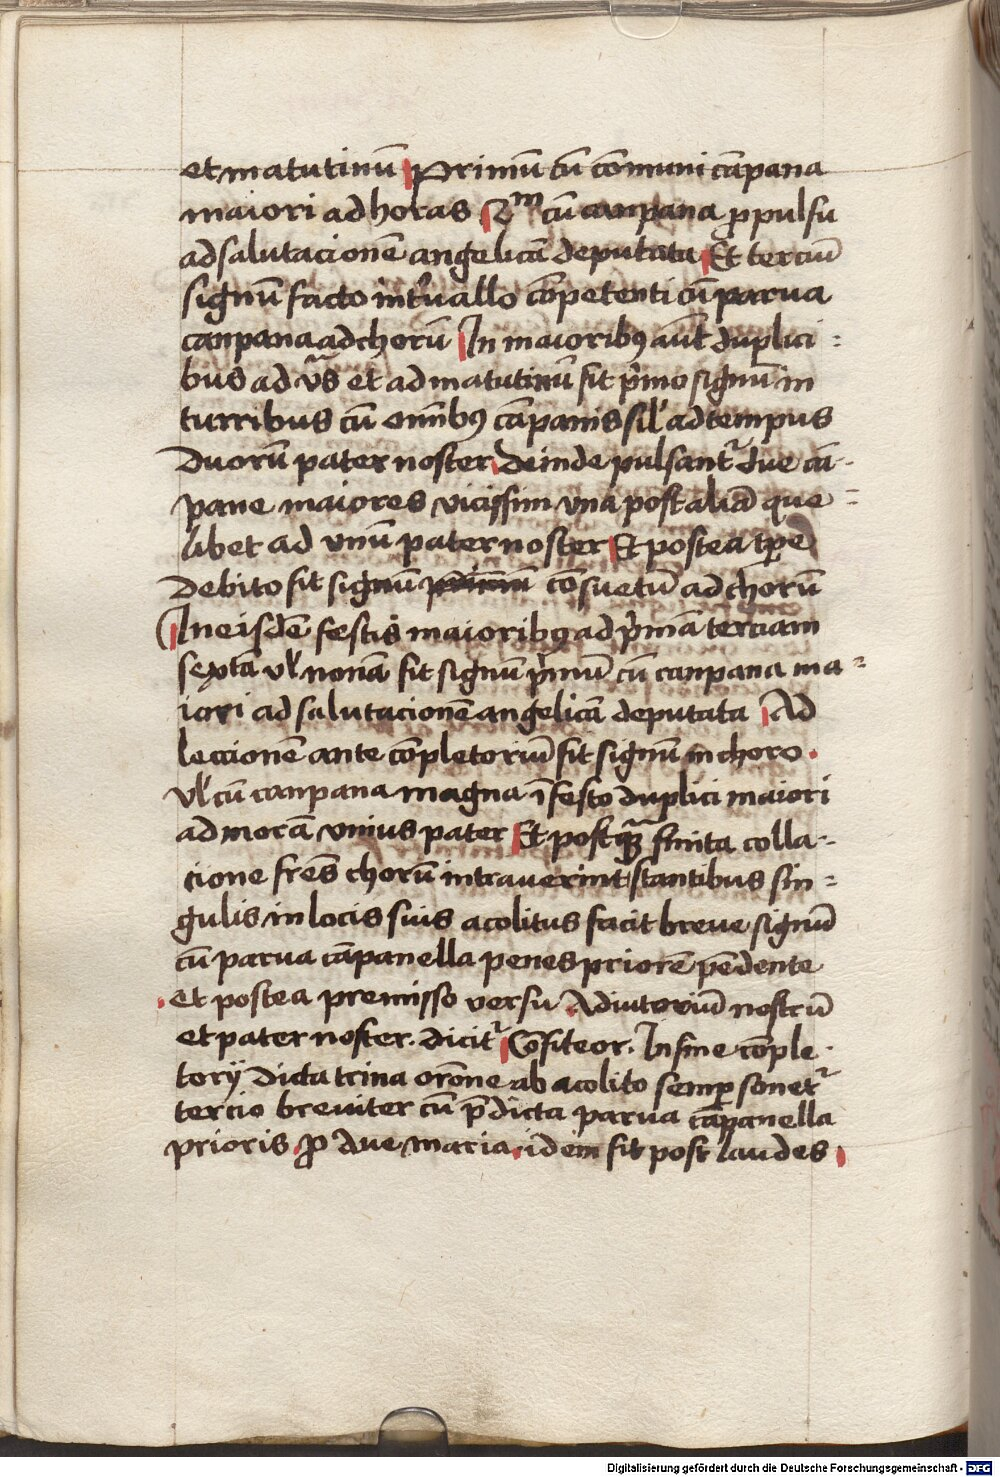 et matutinū Primū cū cōmuni cāpana
maiori ad horas 2m cū campana ꝓ pulsu
ad salutacionē angelicā deputata Et terciū
signū facto int̓uallo cōpetenti cū parua
campana ad chorū In maioribꝰ aūt duplici=
bus ad vꝰas et ad matutinū fit p̓mo signū in
turribus cū omībꝰ cāpanis sil̓ ad tempus
duorū pater noster deinde pulsant᷑ due cā-
pane maiores vicissim vna post aliā que=
libet ad vnū pater noster Et postea tp̄e
debito fit signū cōsuetū ad chorū
In eisdē festis maioribꝰ ad p̓mā terciam
sextā vl̓ nonā fit signū p̓mū cū campana ma=
iori ad salutacionē angelicā deputata Ad
leccionē ante cōpletoriū fit signū in choro.
vl̓ cū campana magna ī festo duplici maiori
ad morā vnius pater Et postqꝫ finita colla-
cione fr̄es chorū intrauerint stantibus sin=
gulis in locis suis acolitus facit breue signū
cū parua cāpanella penes priorē pēdente
et postea premisso versu Adiutoriū nostrū
et pater noster. dicit᷑ Cōfiteor. In fine cōple-
torij dicta trina or̄one ab acolito semꝑ sonet᷑
tercio breuiter cū p̄dicta parua cāpanella
prioris ꝓ Aue maria idem fit post laudes
Digitalisierung gefördert durch die Deutsche Forschungsgemeinschaft - DFG